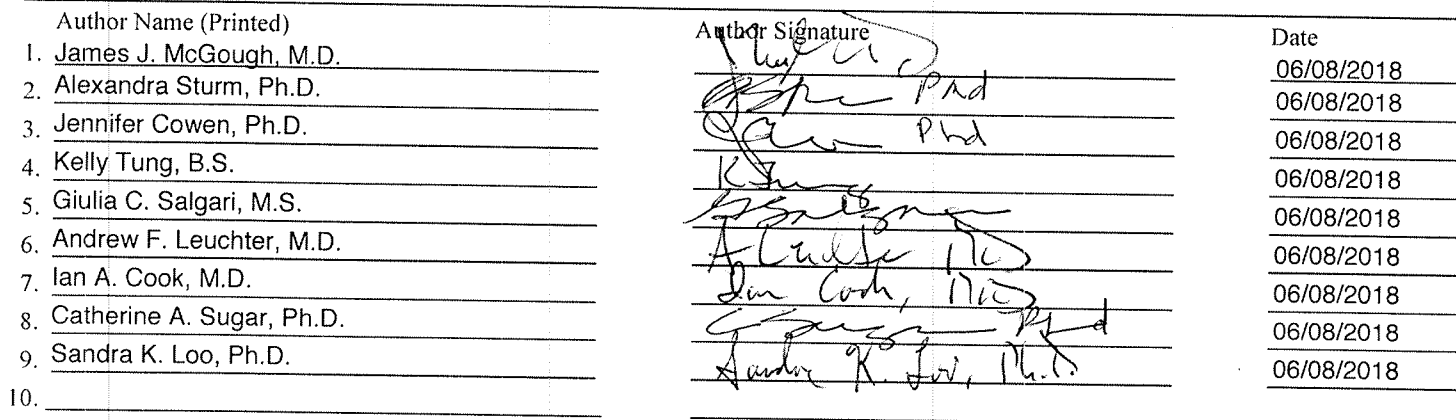 Author Name (Printed) Author Signature Date
1. James J. McGough, M.D. 06/08/2018
2. Alexandra Sturm, Ph.D. PhD 06/08/2018
3. Jennifer Cowen, Ph.D. PhD 06/08/2018
4. Kelly Tung, B.S. K Tung 06/08/2018
5. Giulia C. Salgari, M.S. 06/08/2018
6. Andrew F. Leuchter, M.D. 06/08/2018
7. Ian A. Cook, M.D. Ian Cook, MD 06/08/2018
8. Catherine A. Sugar, Ph.D. PhD 06/08/2018
9. Sandra K. Loo, Ph.D. Sandra K. Loo, Ph.D. 06/08/2018
10.